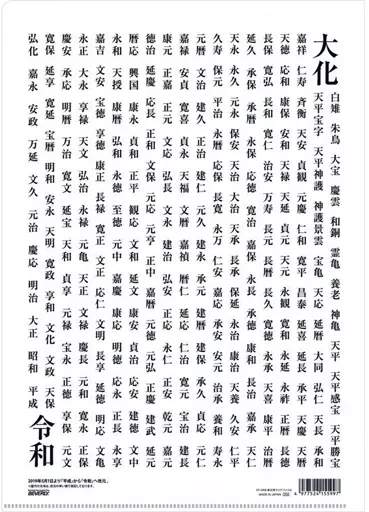 大化
白雉 朱鳥 大宝 慶雲 和銅 霊亀 養老 神亀 天平 天平感宝 天平勝宝
天平宝字 天平神護 神護景雲 宝亀 天応 延暦 大同 弘仁 天長 承和
嘉祥 仁寿 斉衡 天安 貞観 元慶 仁和 寛平 昌泰 延喜 延長 承平 天慶 天暦
天徳 応和 康保 安和 天禄 天延 貞元 天元 永観 寛和 永延 永祚 正暦 長徳
長保 寛弘 長和 寛仁 治安 万寿 長元 長暦 長久 寛徳 永承 天喜 康平 治暦
延久 承保 承暦 永保 応徳 寛治 嘉保 永長 承徳 康和 長治 嘉承 天仁
天永 永久 元永 保安 天治 大治 天承 長承 保延 永治 康治 天養 久安 仁平
久寿 保元 平治 永暦 応保 長寛 永万 仁安 嘉応 承安 安元 治承 養和 寿永
元暦 文治 建久 正治 建仁 元久 建永 承元 建暦 建保 承久 貞応 元仁
嘉禄 安貞 寛喜 貞永 天福 文暦 嘉禎 暦仁 延応 仁治 寛元 宝治 建長
康元 正嘉 正元 文応 弘長 文永 建治 弘安 正応 永仁 正安 乾元 嘉元
徳治 延慶 応長 正和 文保 元応 元亨 正中 嘉暦 元徳 元弘 正慶 建武 延元
暦応 興国 康永 貞和 正平 観応 文和 延文 康安 貞治 応安 建徳 文中
永和 天授 康暦 弘和 永徳 至徳 元中 嘉慶 康応 明徳 応永 正長 永享
嘉吉 文安 宝徳 享徳 康正 長禄 寛正 文正 応仁 文明 長享 延徳 明応 文亀
永正 大永 享禄 天文 弘治 永禄 元亀 天正 文禄 慶長 元和 寛永 正保
慶安 承応 明暦 万治 寛文 延宝 天和 貞享 元禄 宝永 正徳 享保 元文
寛保 延享 寛延 宝暦 明和 安永 天明 寛政 享和 文化 文政 天保
弘化 嘉永 安政 万延 文久 元治 慶応 明治 大正 昭和 平成
令和
2019年5月1日より「平成」から「令和」へ改元。
BEVERLY
MADE IN JAPAN
4 977524 155997